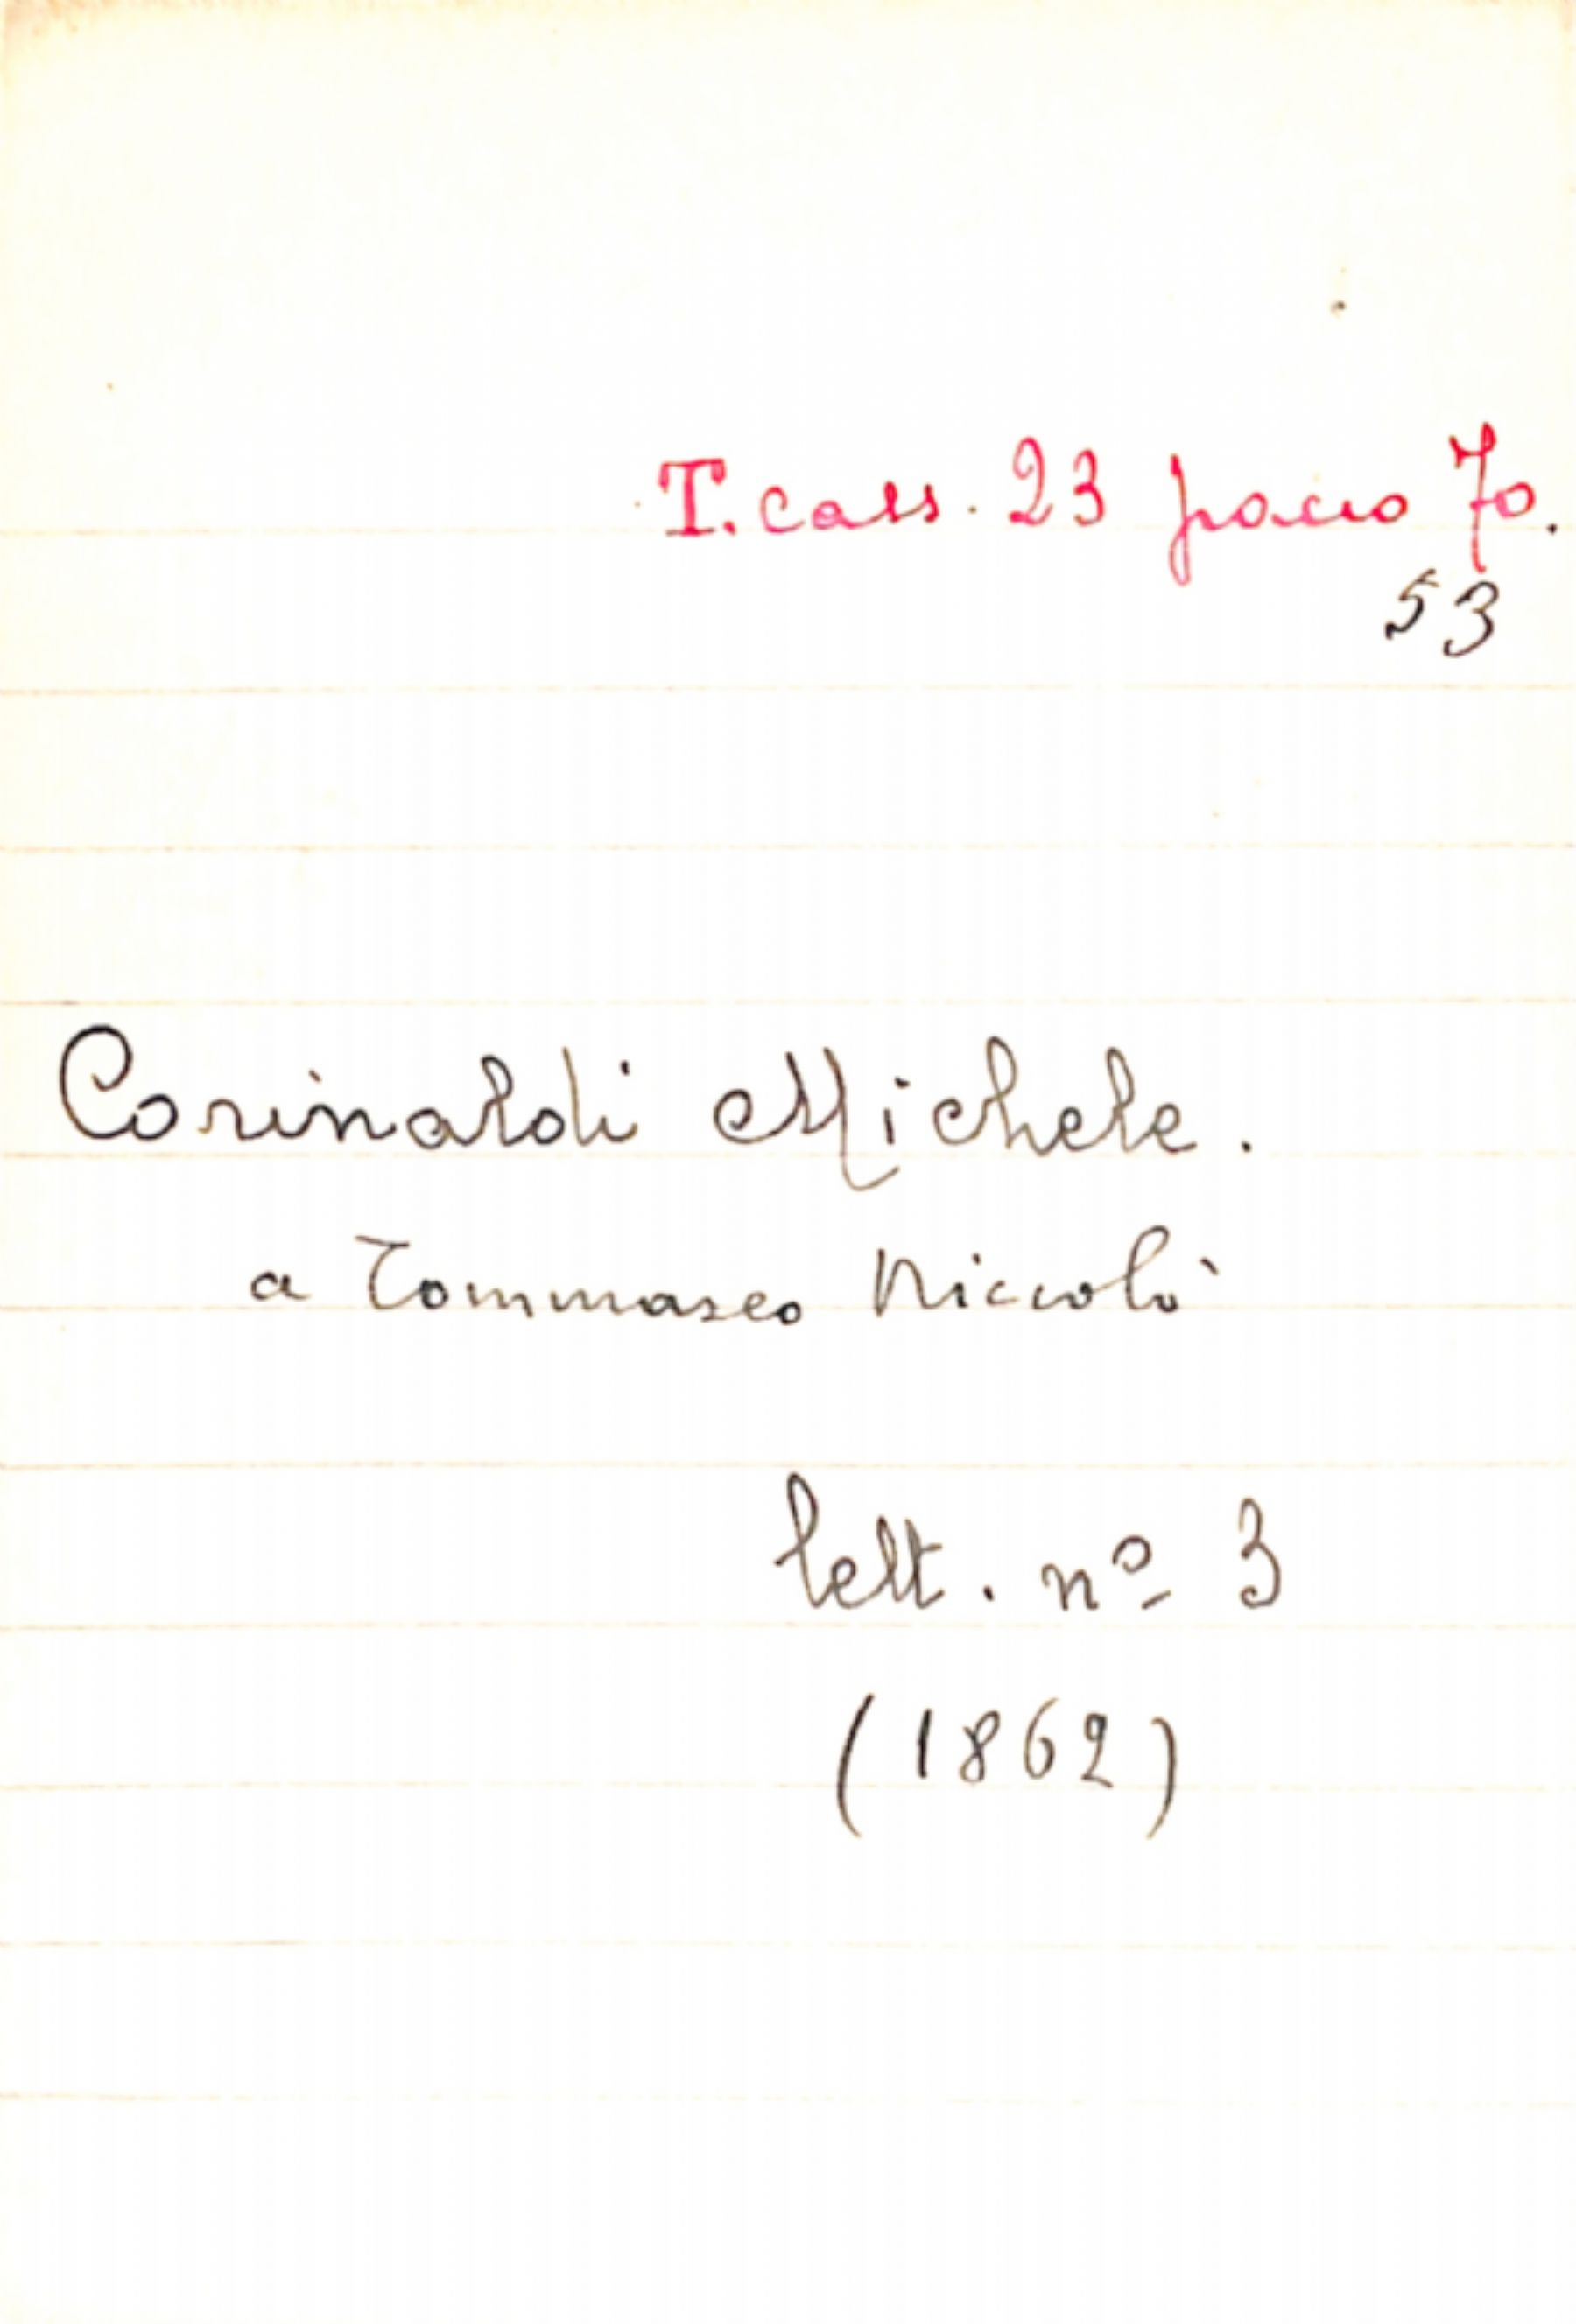 T. cass. 23 pacco 70.
53
Corinaldi Michele.
a Tommaseo Niccolò
lett. nº 3
(1862)